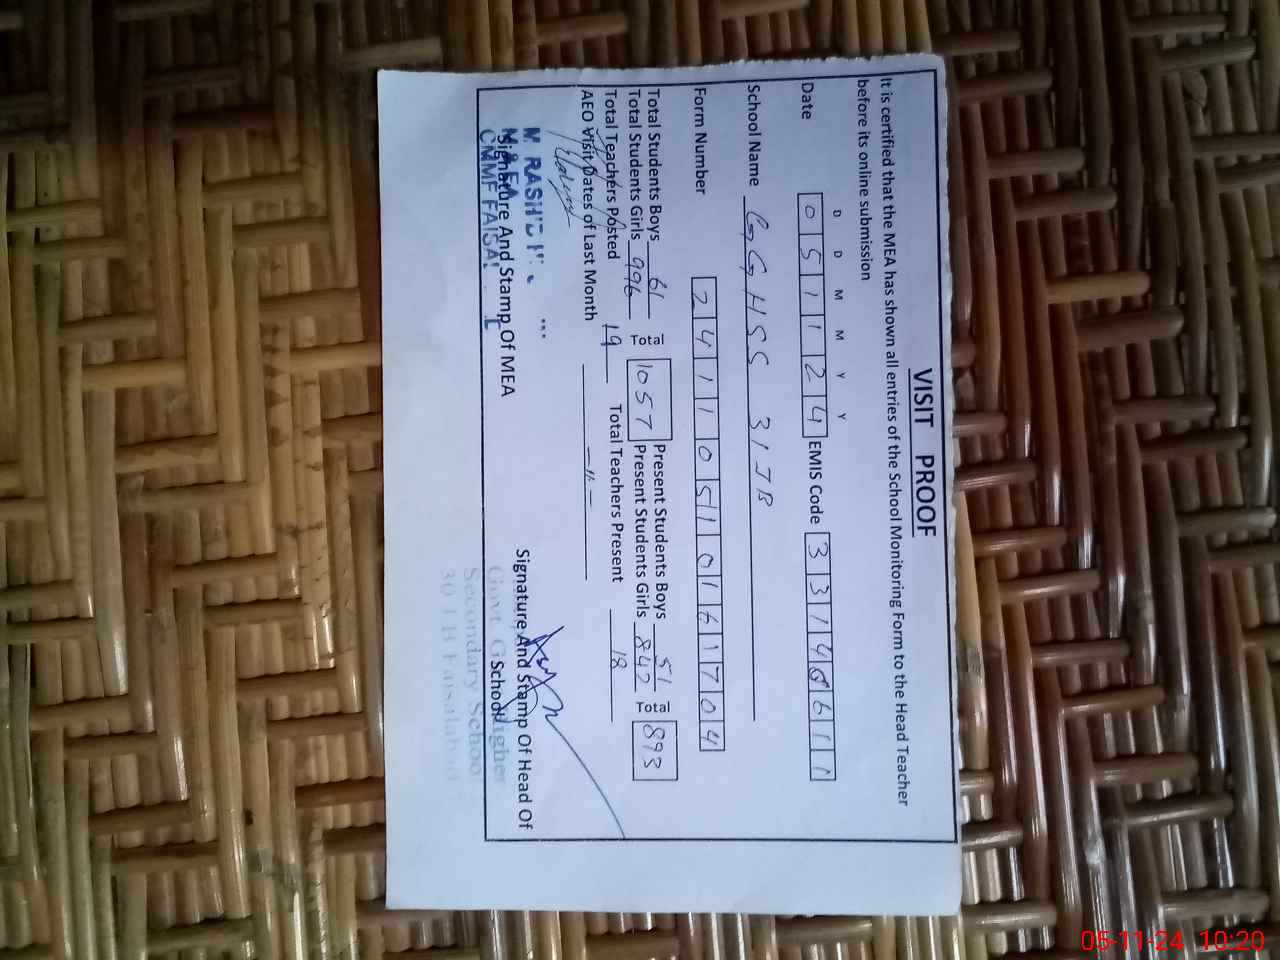 VISIT PROOF
It is certified that the MEA has shown all entries of the School Monitoring Form to the Head Teacher
before its online submission
D D M M Y Y
Date 051124 EMIS Code 331 611
School Name GGHSS 31JB
Form Number 24110510161704
Total Students Boys 61 Present Students Boys 51
Total Students Girls 996 Total 1057 Present Students Girls 842 Total 893
Total Teachers Posted 19 Total Teachers Present 18
AEO Visit Dates of Last Month -"-
Signature And Stamp Of MEA
CMMF FAISAL
Signature And Stamp Of Head Of
School
Govt. G Higher
Secondary Schoo
30 J B Faisalabad
05-11-24 10:20